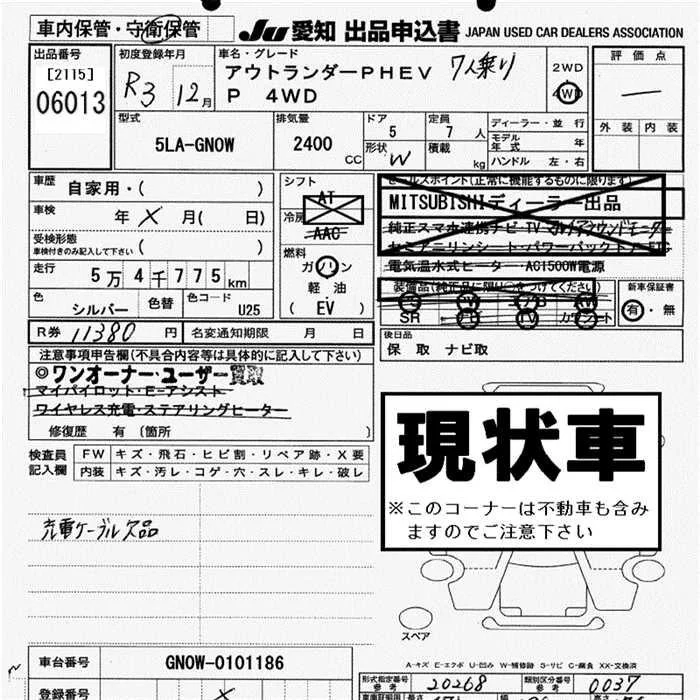 車内保管・守衛保管
JU 愛知 出品申込書 JAPAN USED CAR DEALERS ASSOCIATION
出品番号
[2115]
06013
初度登録年月
R3 12月
車名・グレード
アウトランダーPHEV 7人乗り
P 4WD
2WD
4WD
評価点
―
外装 内装
型式
5LA-GN0W
排気量
2400
CC
ドア
5
形状
W
定員
7 人
積載
kg
ディーラー・並行
モデル年式 年
ハンドル 左・右
車歴
自家用・( )
車検
年 × 月( 日)
受検形態
車検付きのみ記入して下さい
( )
走行
5万4千775km
色
シルバー
色替
色コード
U25
シフト
AT
冷房
AAC
燃料
ガソリン
軽油
( EV )
セールスポイント(正常に機能するものに限ります)
MITSUBISHIディーラー出品
純正スマホ連携ナビ・TV マルチアラウンドモニター
電気温水式ヒーター・AC1500W電源
装備品(純正品に限り○をつけてください)
SR ナビ TV カワシート
新車保証書
有・無
R券 11380 円
名変通知期限 月 日
後日品
保 取 ナビ取
注意事項申告欄(不具合内容等は具体的に記入して下さい)
◎ワンオーナー・ユーザー買取
マイパイロット・E-アシスト
ワイヤレス充電・ステアリングヒーター
修復歴 有 (箇所 )
検査員記入欄
FW キズ・飛石・ヒビ割・リペア跡・X要
内装 キズ・汚レ・コゲ・穴・スレ・キレ・破レ
充電ケーブル欠品
現状車
※このコーナーは不動車も含みますのでご注意下さい
スペア
A-キズ E-エクボ U-凹み W-補修跡 S-サビ C-腐食 XX-交換済
車台番号
GN0W-0101186
登録番号
×
形式指定番号
参考
20268
類別区分番号
参考
0037